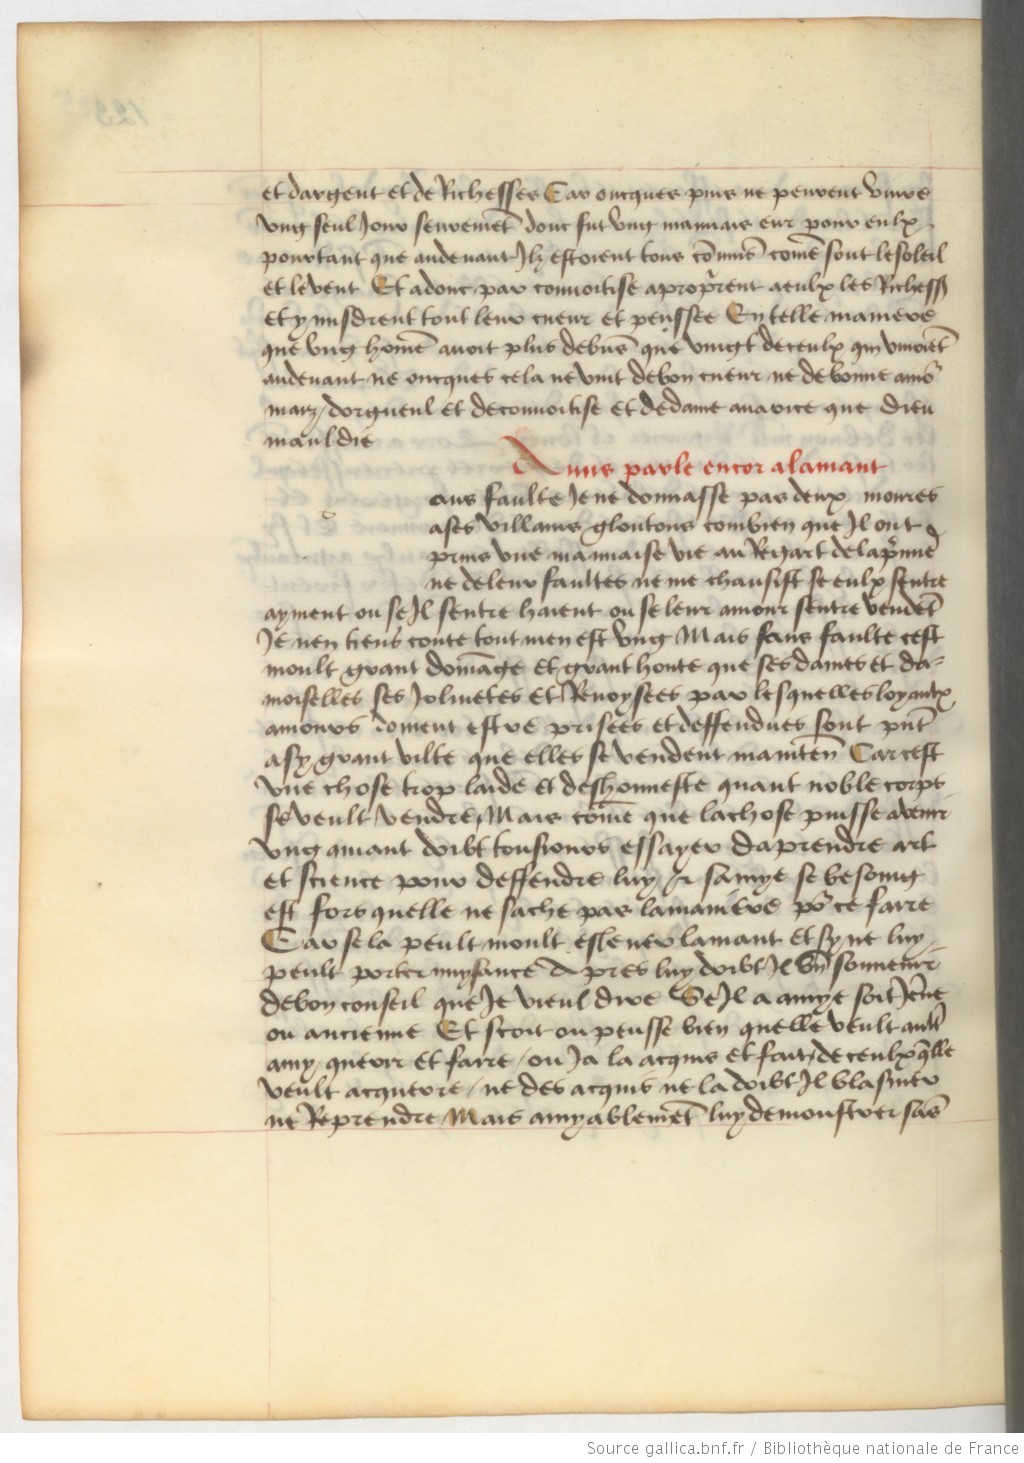 et dargent et de Richesses Car oncques puis ne peurent vivre
vng seul Jour seuremēt donc fut vng mauuais eur pour eulx
pourtant que audeuant Ilz estoient tous cōmuns comē sont le soleil
et le vent Et adonc par conuoitise aproprerent a eulx les Richess
et y misdrent tout leur cueur et pensee En telle maniere
que vng homē auoit plus de biēs que vingt de ceulx qui viuoiēt
audeuant ne oncques cela ne vint de bon cueur ne de bonne amor
maiz / dorgueul et de conuoitise et de dame auarice que dieu
mauldie
Amis parle encor a lamant
ans faulte Je ne donnasse pas deux meures
a ses villains gloutons combien que Il ont
prins vne mauuaise vie au Regart de la pmiē
ne de leur faultes ne me chausist se eulx sentre
ayment ou se Il sentre haient ou se leur amour sentre vendēt
Je nen tiens conte tout men est vng Mais sans faulte cest
moult grant domāge et grant honte que ses dames et da=
moiselles ses Joliuetes et Renoysees par lesquelles loyaulx
amours doiuent estre prisees et deffendues sont pnt
a sy grant vilte que elles se vendent maintēn Car cest
vne chose trop laide et deshonneste quant noble corps
se veult vendre / Mais comē que la chose puisse auenir
vng amant doibt tousiours essayer daprendre art
et science pour deffendre luy et samye se besoing
est fors quelle ne sache pas la maniere pr ce faire
Car se la peult moult esleuer lamant et sy ne luy
peult porter nuysance Apres luy doibt Il bn souuenir
de bon conseil que Je vieul dire Se Il a amye soit Jēne
ou ancienne Et scoit ou pense bien quelle veult autr
amy querir et faire / ou Ja la acquis et fait / de ceulx qlle
veult acquerre / ne des acquis ne la doibt Il blasmer
ne Reprendre Mais amyablemēt luy demonstrer sās
Source gallica.bnf.fr / Bibliothèque nationale de France